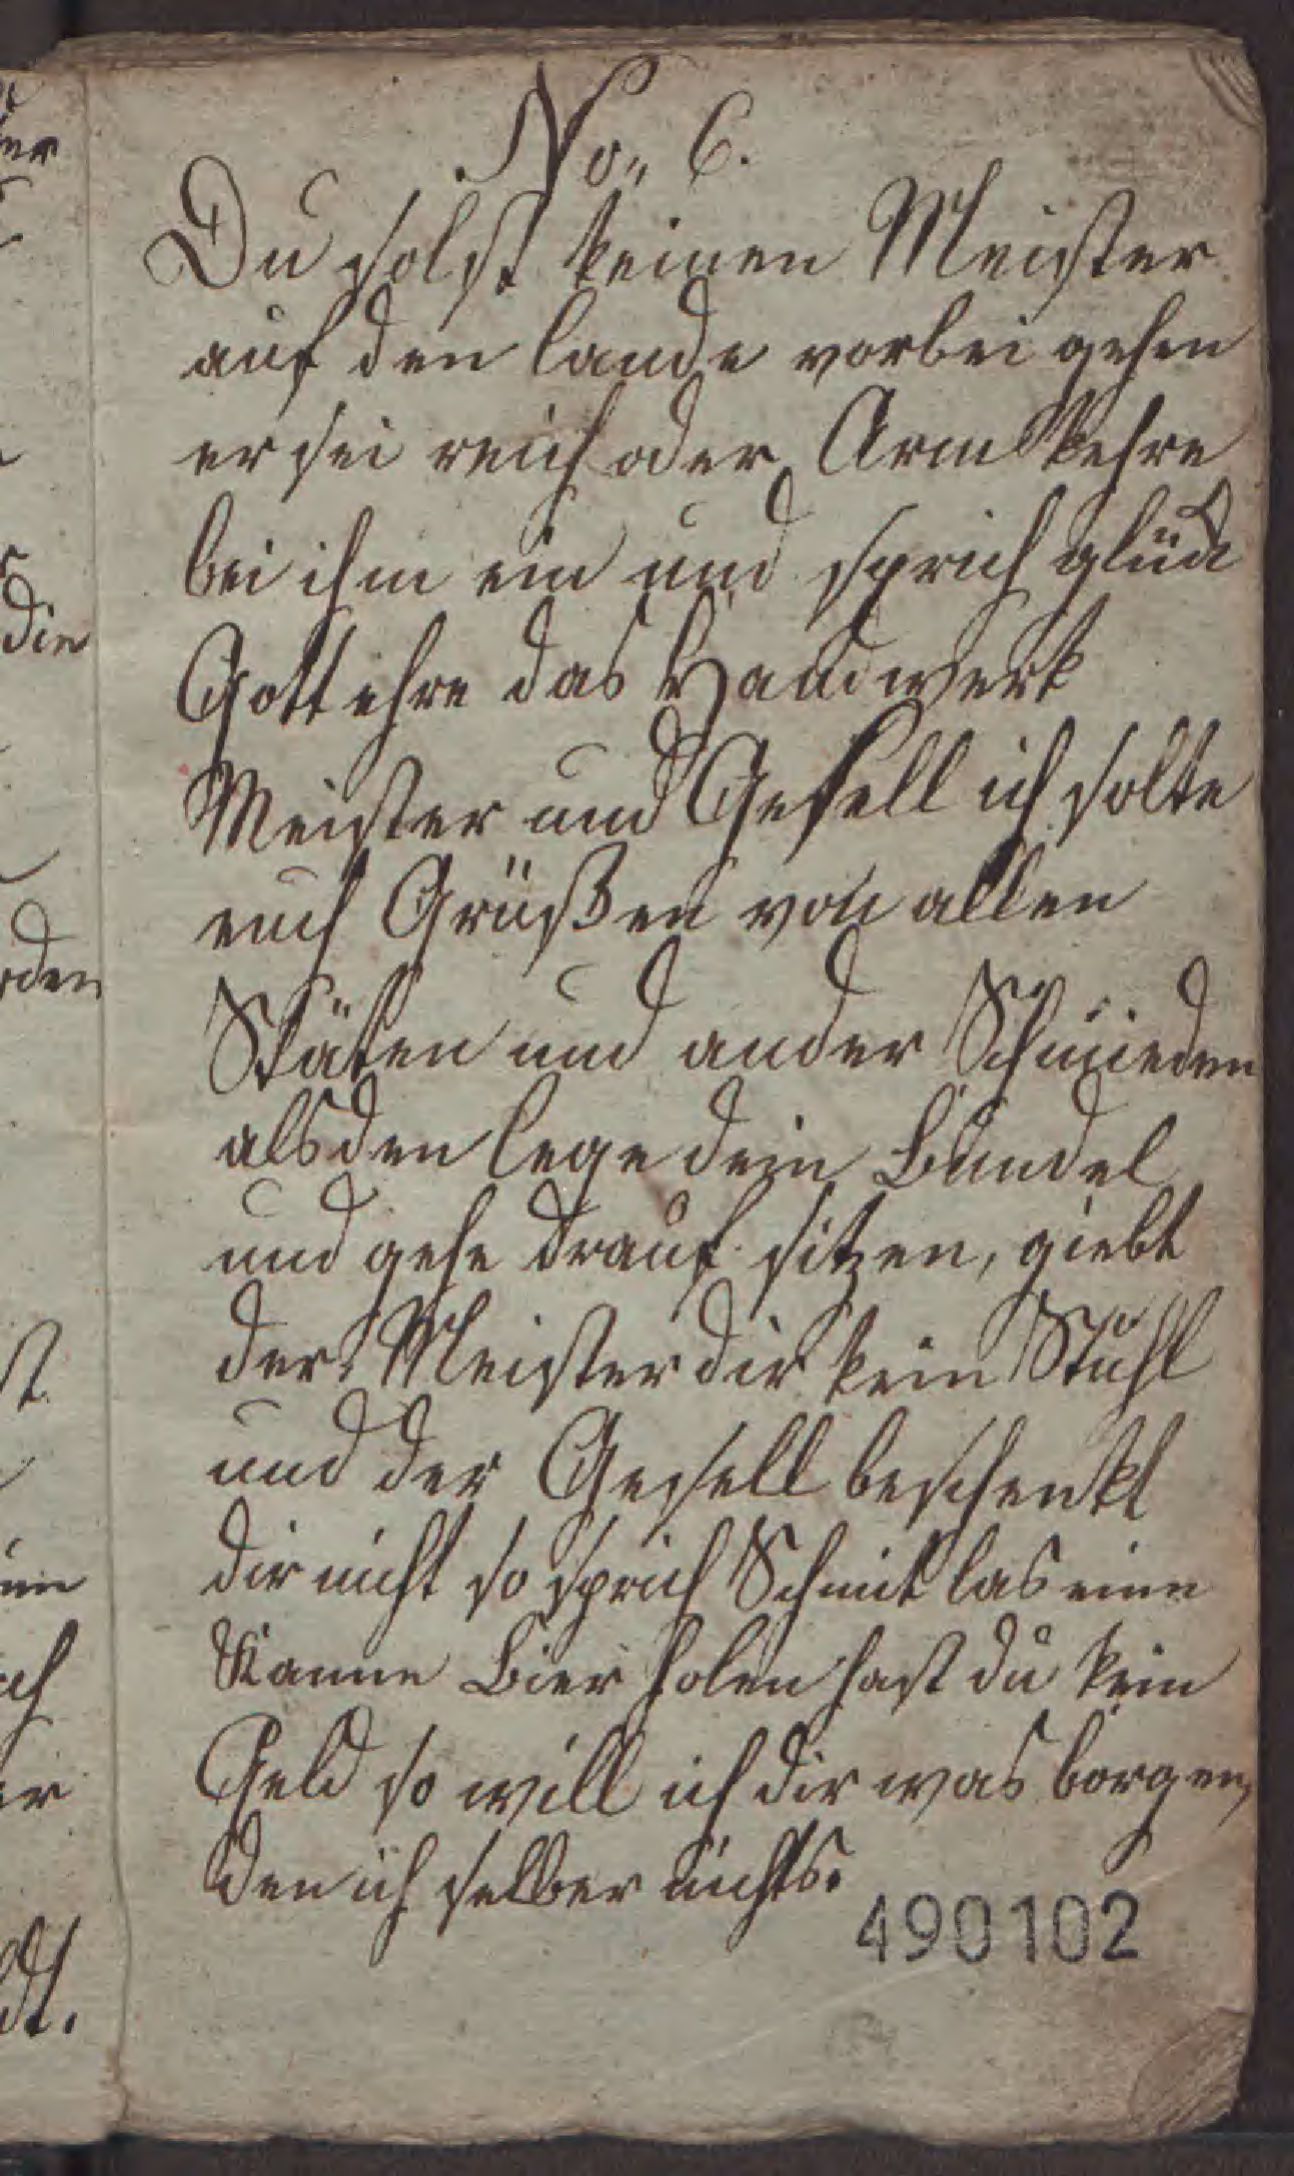 No. 6.
Du solst keinen Meister
auf den lande vorbei gehen
er sei reich oder Arm kehre
bei ihm ein und sprich glück
Gott ehre das Handwerk
Meister und Gesell ich solte
euch Grüßen von allen
Stäten und ander Schmieden
alsden lege dein Bündel
und gehe drauf sitzen, giebt
der Meister dir kein Stuhl
und der Gesell beschenkt
dir nicht so sprich Schmit las eine
Kanne Bier holen hast du kein
Geld so will ich dir was borgen,
den ich selber nichts.
490102
die